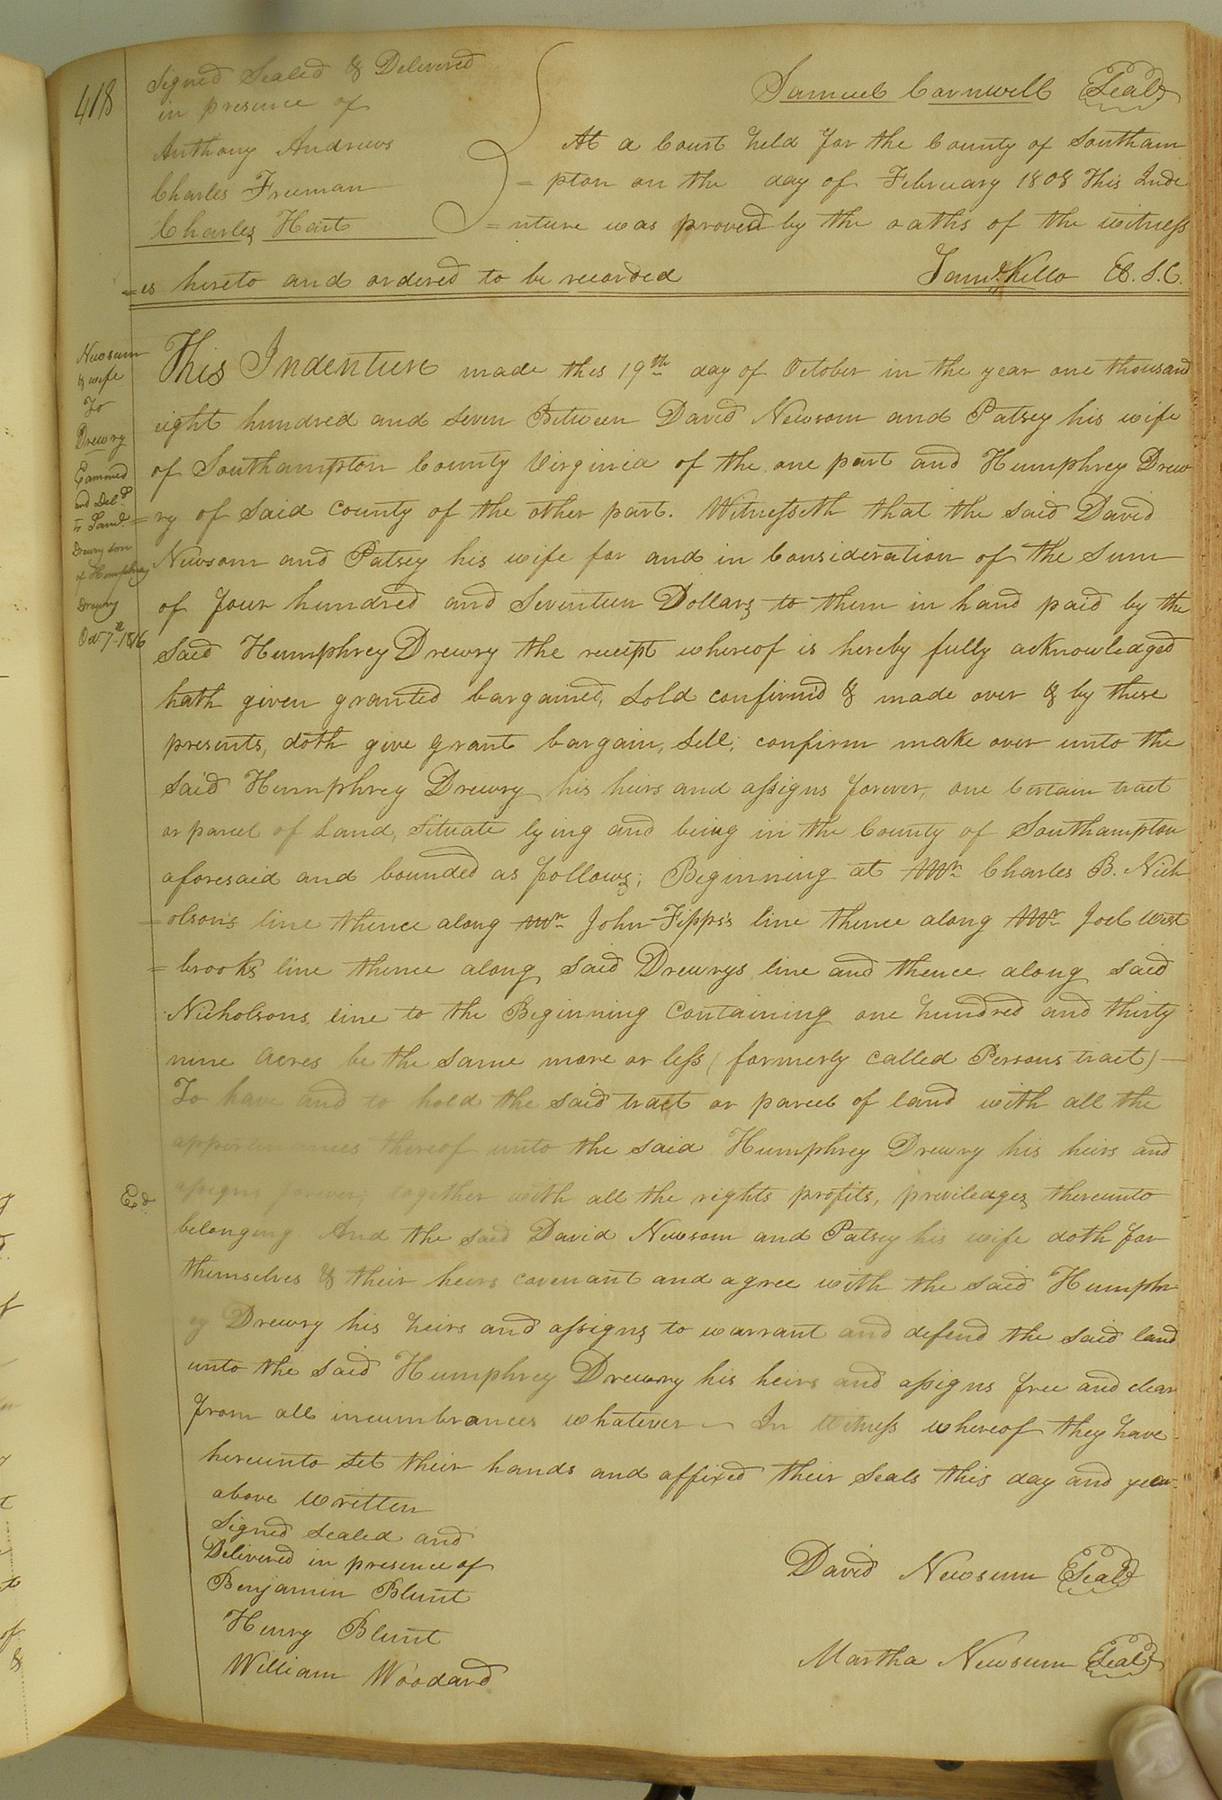 418
Signed Sealed & Delivered
in presence of
Anthony Andrews
Charles Freeman
Charles Hart
Samuel Carnwell Seal
At a Court held for the County of Southam
= pton on the day of February 1808 this Inde
= nture was proved by the oaths of the witness
= es hereto and ordered to be recorded
Saml. Kello Cl. S. C.
Newsum
& wife
To
Drewry
Examined
and Deld.
to Saml.
Drewry son
of Humphrey
Drewry
Oct 7th 1816
This Indenture made this 19th day of October in the year one thousand
eight hundred and seven Between David Newsom and Patsey his wife
of Southampton County Virginia of the one part and Humphrey Drew
= ry of said County of the other part. Witnesseth that the said David
Newsom and Patsey his wife for and in Consideration of the Sum
of four hundred and Seventeen Dollars to them in hand paid by the
said Humphrey Drewry the receipt whereof is hereby fully acknowledged
hath given granted bargained, sold confirm'd & made over & by these
presents, doth give grant bargain, sell, confirm make over unto the
said Humphrey Drewry his heirs and assigns forever, one Certain tract
or parcel of Land, Situate lying and being in the County of Southampton
aforesaid and bounded as follows; Beginning at Mr. Charles B. Nich
= olson's line thence along Mr. John Fipps's line thence along Mr. Joel West
= brooks line thence along said Drewrys line and thence along said
Nicholsons line to the Beginning Containing one hundred and thirty
nine Acres be the same more or less (formerly called Persons tract)
To have and to hold the said tract or parcel of land with all the
appurtenances thereof unto the said Humphrey Drewry his heirs and
Ed.
assigns forever, together with all the rights profits, priviledges thereunto
belonging And the said David Newsom and Patsey his wife doth for
themselves & their heirs covenant and agree with the said Humphr
ey Drewry his heirs and assigns to warrant and defend the said land
unto the said Humphrey Drewry his heirs and assigns free and clear
from all incumbrances whatever — In Witness whereof they have
hereunto set their hands and affixed their Seals this day and year
above written
Signed sealed and
Delivered in presence of
Benjamin Blunt
Henry Blunt
William Woodard
David Newsum Seal
Martha Newsum Seal